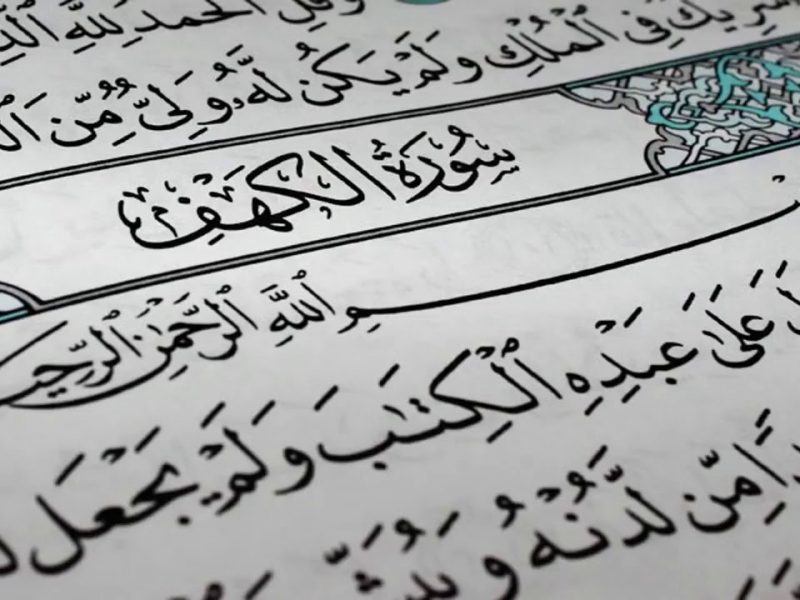 وَقُلِ ٱلْحَمْدُ لِلَّهِ
شَرِيكٌ فِى ٱلْمُلْكِ وَلَمْ يَكُن لَّهُۥ وَلِىٌّ مِّنَ
سُورَةُ الكَهْفِ
بِسْمِ ٱللَّهِ ٱلرَّحْمَٰنِ ٱلرَّحِيمِ
عَلَىٰ عَبْدِهِ ٱلْكِتَٰبَ وَلَمْ يَجْعَل
مِّن لَّدُنْهُ